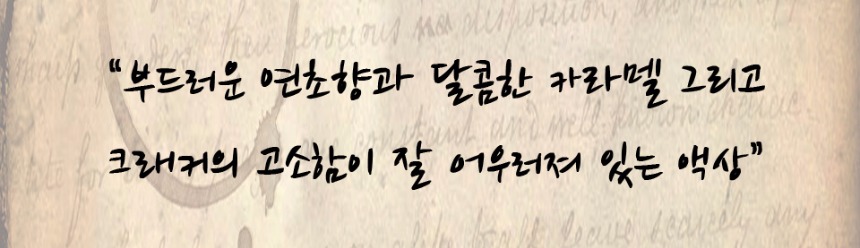 “부드러운 연초향과 달콤한 카라멜 그리고
크래커의 고소함이 잘 어우러져 있는 액상”